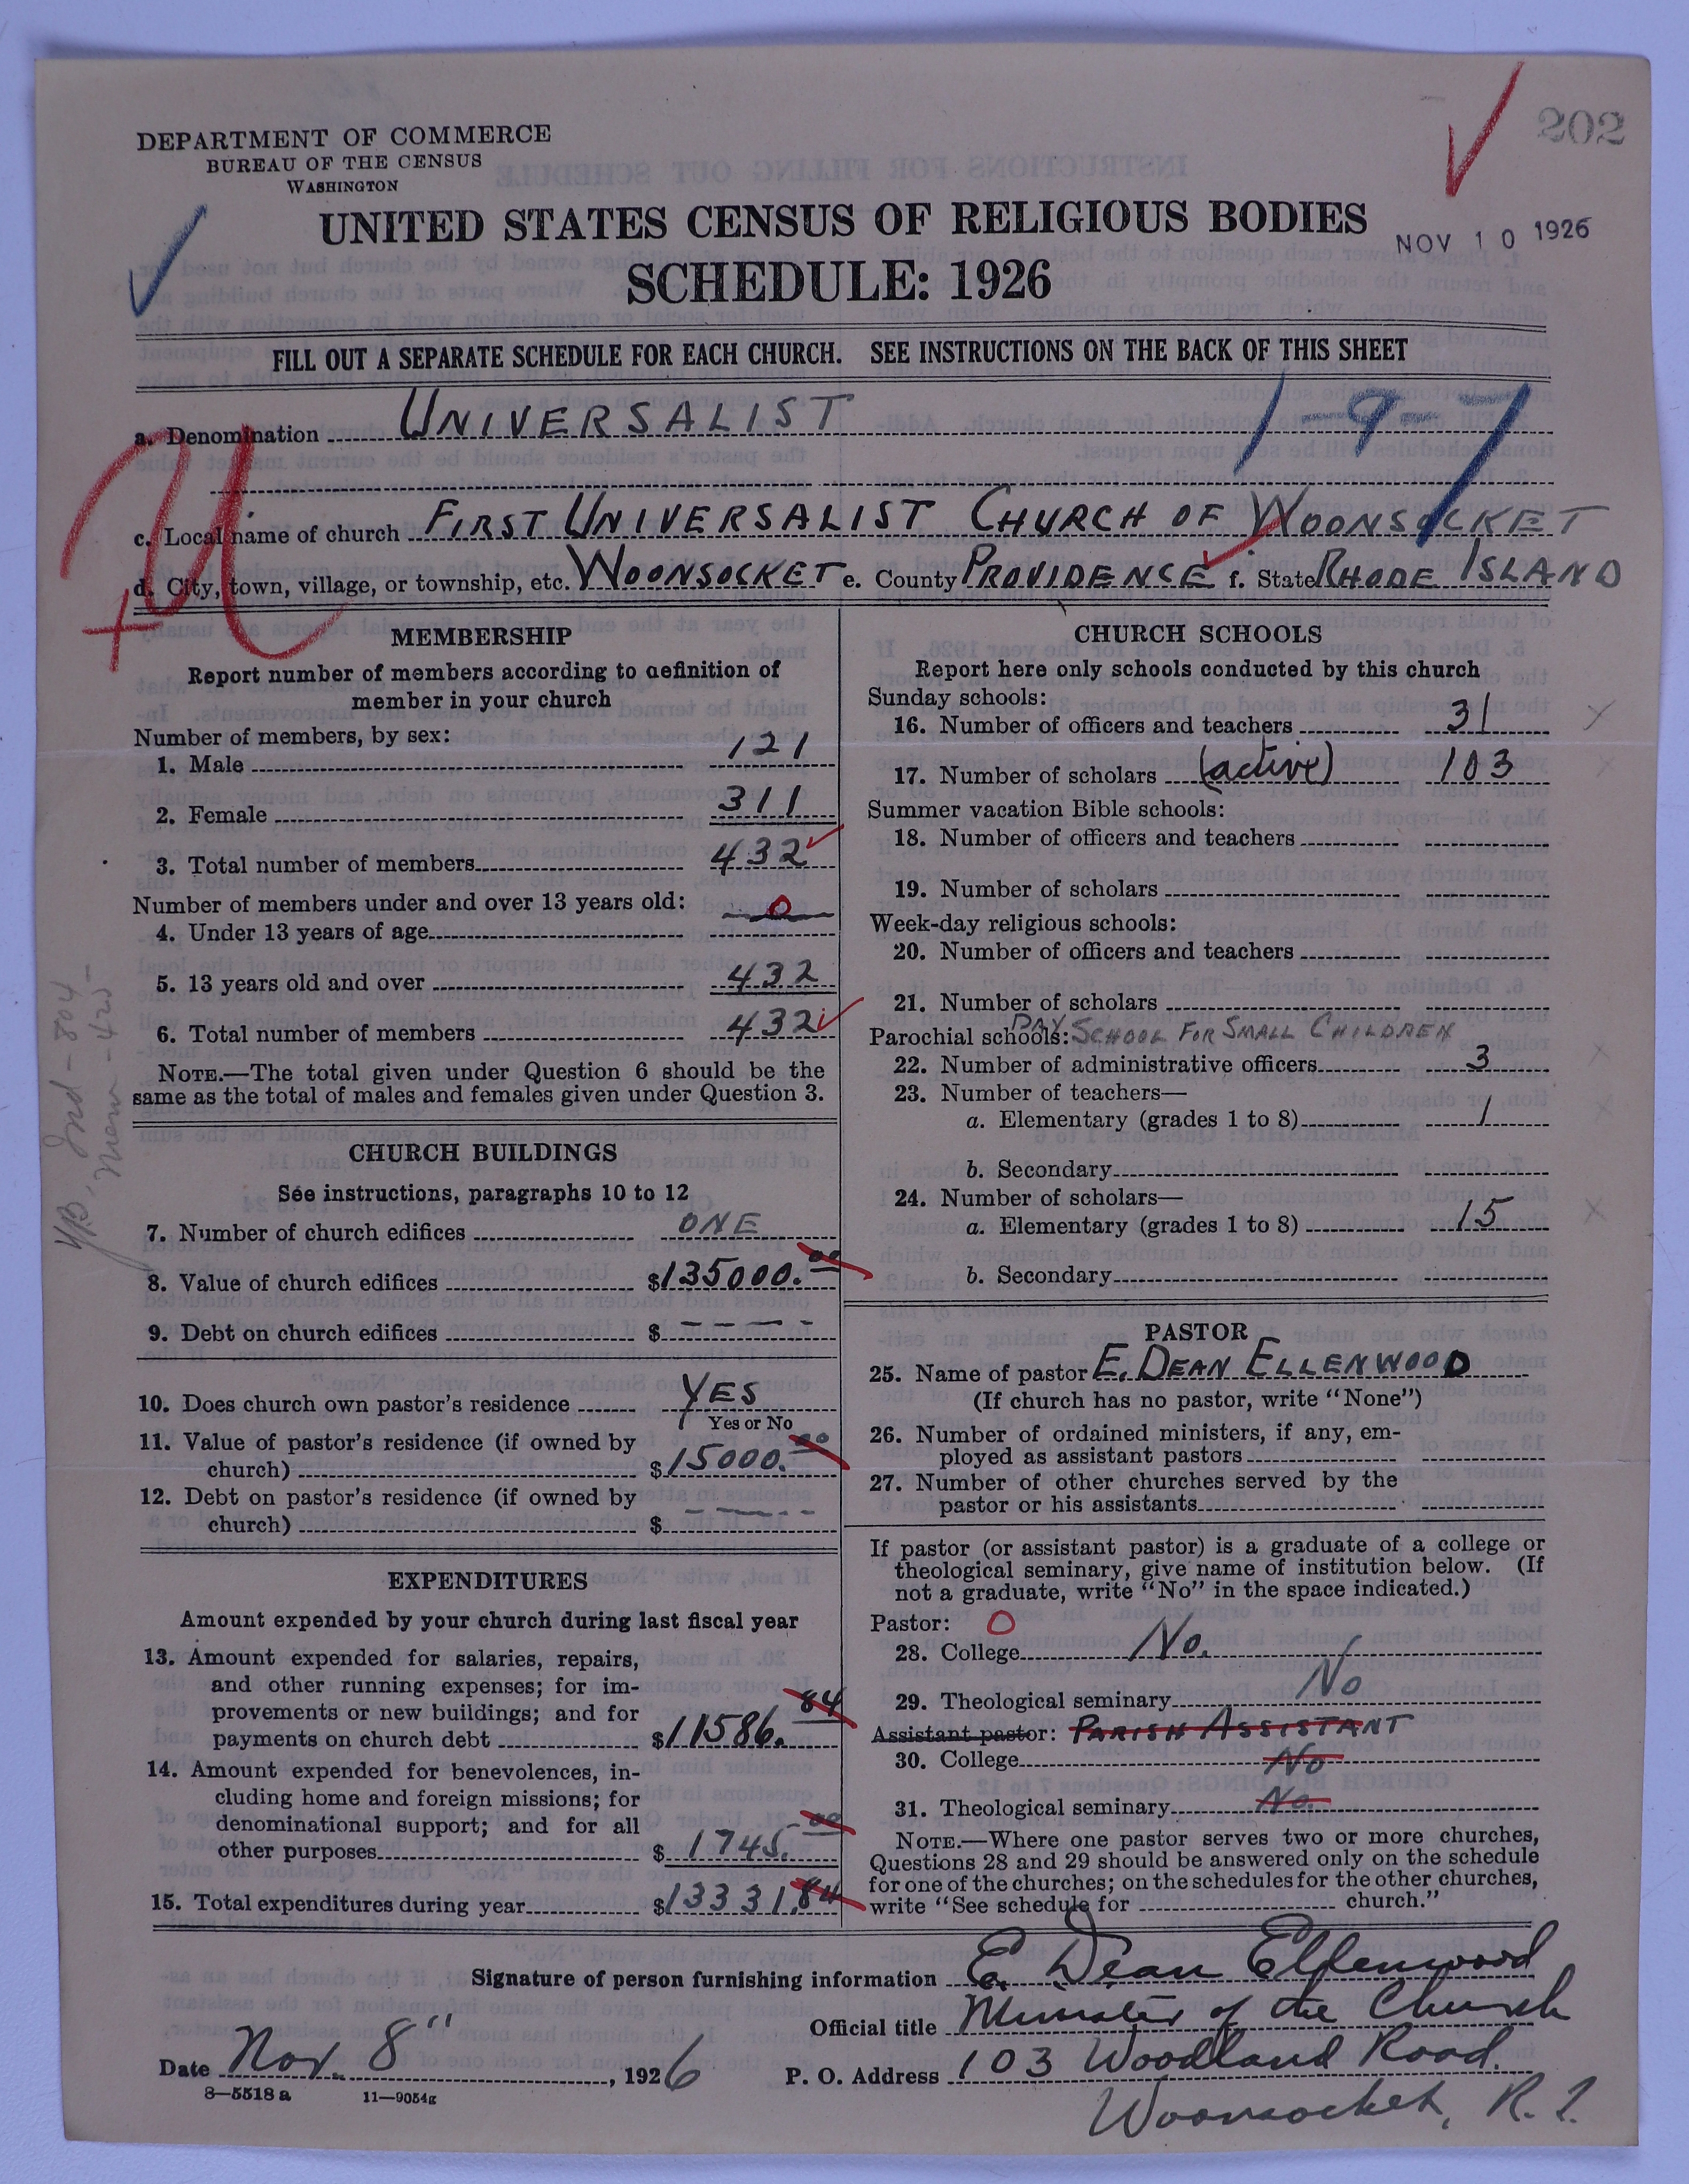 202
DEPARTMENT OF COMMERCE
BUREAU OF THE CENSUS
WASHINGTON
UNITED STATES CENSUS OF RELIGIOUS BODIES
NOV 10 1926
SCHEDULE: 1926
FILL OUT A SEPARATE SCHEDULE FOR EACH CHURCH. SEE INSTRUCTIONS ON THE BACK OF THIS SHEET
1-9-7
a. Denomination UNIVERSALIST
c. Local name of church FIRST UNIVERSALIST CHURCH OF WOONSOCKET
d. City, town, village, or township, etc. WOONSOCKET e. County PROVIDENCE f. State RHODE ISLAND
MEMBERSHIP
Report number of members according to definition of
member in your church
Number of members, by sex:
1. Male 121
2. Female 311
3. Total number of members 432
Number of members under and over 13 years old: 0
4. Under 13 years of age
5. 13 years old and over 432
6. Total number of members 432
NOTE.—The total given under Question 6 should be the
same as the total of males and females given under Question 3.
CHURCH BUILDINGS
See instructions, paragraphs 10 to 12
7. Number of church edifices ONE
8. Value of church edifices $135000.00
9. Debt on church edifices $ - - - -
10. Does church own pastor's residence YES
Yes or No
11. Value of pastor's residence (if owned by
church) $15000.00
12. Debt on pastor's residence (if owned by
church) $ - - - -
EXPENDITURES
Amount expended by your church during last fiscal year
13. Amount expended for salaries, repairs,
and other running expenses; for im-
provements or new buildings; and for
payments on church debt $11586.84
14. Amount expended for benevolences, in-
cluding home and foreign missions; for
denominational support; and for all
other purposes $1745.00
15. Total expenditures during year $13331.84
CHURCH SCHOOLS
Report here only schools conducted by this church
Sunday schools:
16. Number of officers and teachers 31
17. Number of scholars (active) 103
Summer vacation Bible schools:
18. Number of officers and teachers
19. Number of scholars
Week-day religious schools:
20. Number of officers and teachers
21. Number of scholars
Parochial schools: DAY SCHOOL FOR SMALL CHILDREN
22. Number of administrative officers 3
23. Number of teachers—
a. Elementary (grades 1 to 8) 1
b. Secondary
24. Number of scholars—
a. Elementary (grades 1 to 8) 15
b. Secondary
PASTOR
25. Name of pastor E. DEAN ELLENWOOD
(If church has no pastor, write "None")
26. Number of ordained ministers, if any, em-
ployed as assistant pastors
27. Number of other churches served by the
pastor or his assistants
If pastor (or assistant pastor) is a graduate of a college or
theological seminary, give name of institution below. (If
not a graduate, write "No" in the space indicated.)
Pastor: O
28. College No.
29. Theological seminary No
Assistant pastor: PARISH ASSISTANT
30. College No
31. Theological seminary No.
NOTE.—Where one pastor serves two or more churches,
Questions 28 and 29 should be answered only on the schedule
for one of the churches; on the schedules for the other churches,
write "See schedule for church."
Signature of person furnishing information E. Dean Ellenwood
Official title Minister of the Church
Date Nov. 8", 1926 P. O. Address 103 Woodland Road.
Woonsocket, R.I.
8—5518 a 11—9054g